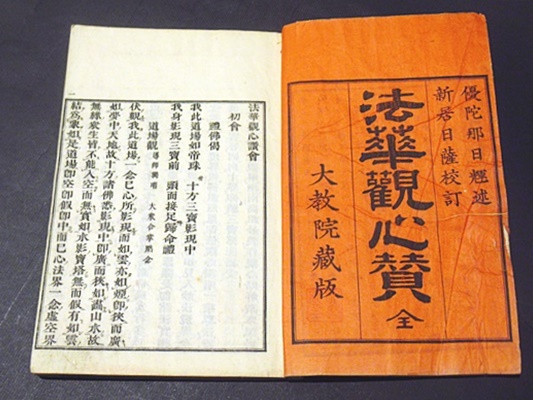 優陀那日輝述
新居日薩校訂
法華觀心賛 全
大教院藏版
法華觀心讃會
初會
禮佛偈
我此道場如帝珠 十方三寶影現中
我身影現三寶前 頭面接足歸命禮
道場觀 導師獨唱 大衆合掌黙念
伏觀我此道場一念已心所影現而如雲亦如煙卽狹而廣
如夢中天地故十方諸佛悉影現中卽廣而狹如畵山水故
無緣衆生皆不能入空而無實如水影寶塔無而假有如雲
結爲象如是道場卽空卽假卽中而已心法界一念虚空界